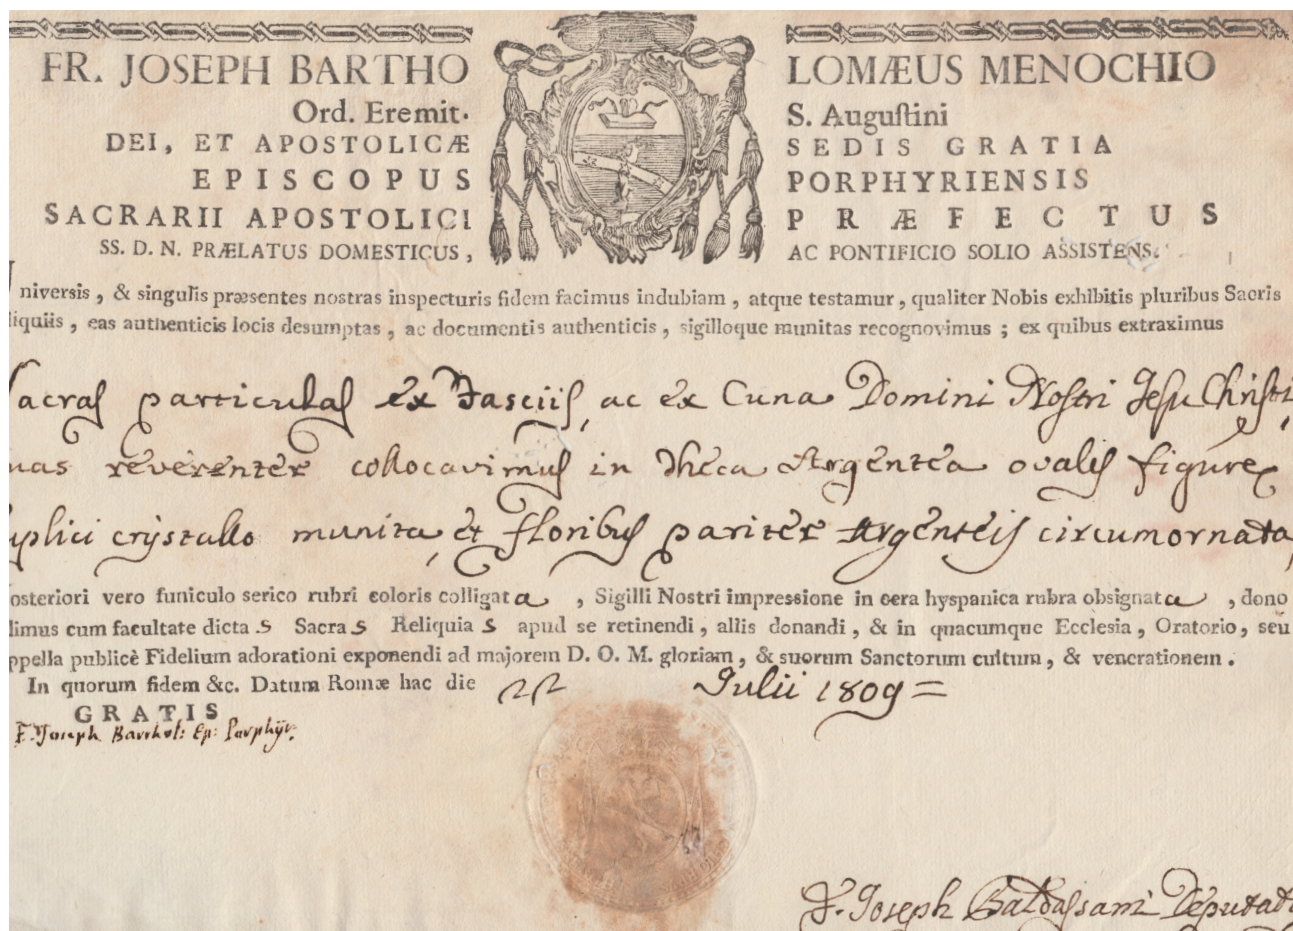 FR. JOSEPH BARTHO LOMÆUS MENOCHIO
Ord. Eremit. S. Auguſtini
DEI, ET APOSTOLICÆ SEDIS GRATIA
EPISCOPUS PORPHYRIENSIS
SACRARII APOSTOLICI PRÆFECTUS
SS. D. N. PRÆLATUS DOMESTICUS, AC PONTIFICIO SOLIO ASSISTENS.
niversis, & singulis præsentes nostras inspecturis fidem facimus indubiam, atque testamur, qualiter Nobis exhibitis pluribus Sacris
liquiis, eas authenticis locis desumptas, ac documentis authenticis, sigilloque munitas recognovimus; ex quibus extraximus
Sacras particulas ex Fasciis, ac ex Cuna Domini Nostri Jesu Christi,
uas reverenter collocavimus in theca Argentea ovalis figure
uplici crÿstallo munita, et floribus pariter Argenteis circumornata,
osteriori vero funiculo serico rubri coloris colligata, Sigilli Nostri impressione in cera hyspanica rubra obsignata, dono
dimus cum facultate dictas Sacras Reliquias apud se retinendi, aliis donandi, & in quacumque Ecclesia, Oratorio, seu
ppella publicè Fidelium adorationi exponendi ad majorem D. O. M. gloriam, & suorum Sanctorum cultum, & venerationem.
In quorum fidem &c. Datum Romæ hac die 22 Julii 1809=
GRATIS
F. Joseph Barthol: Ep: Porphÿr:
F. Joseph Baldassani Deputat